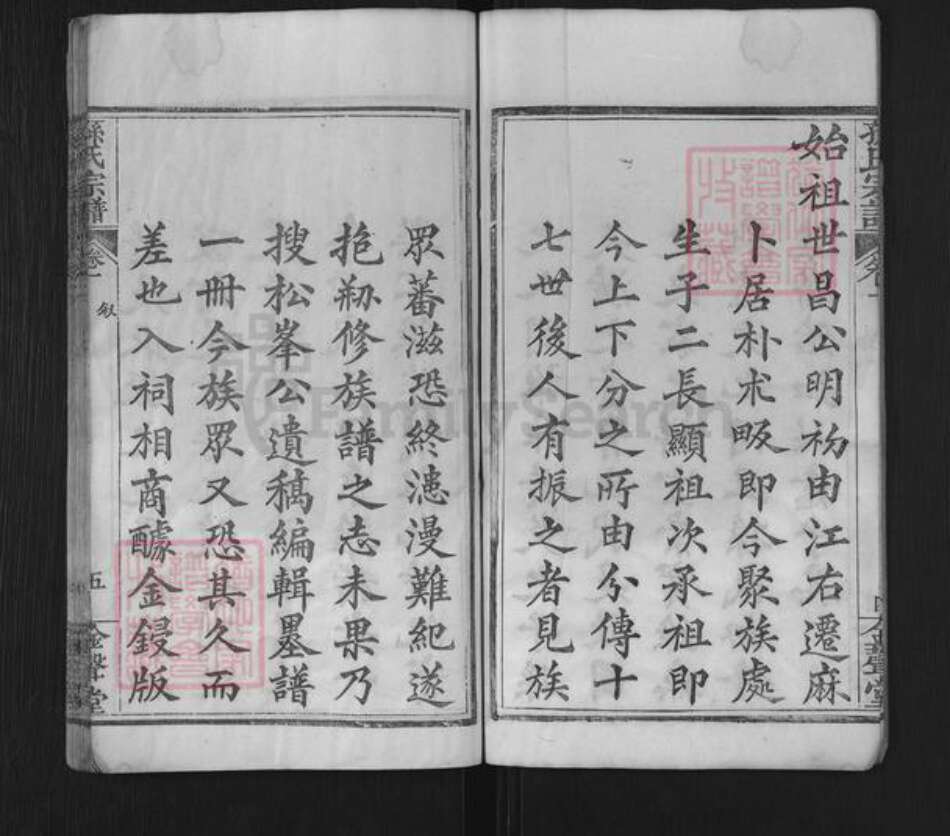 始祖世昌公明初由江右遷麻
卜居朴朮畈即今聚族處
生子二長顯祖次承祖即
今上下分之所由分傳十
七世後人有振之者見族
眾蕃滋恐終漶漫難紀遂
抱剏修族譜之志未果乃
搜松峯公遺稿編輯墨譜
一冊今族眾又恐其久而
差也入祠相商醵金鋟版
孫氏宗譜
卷一
敘
五
金聲堂
FamilySearch